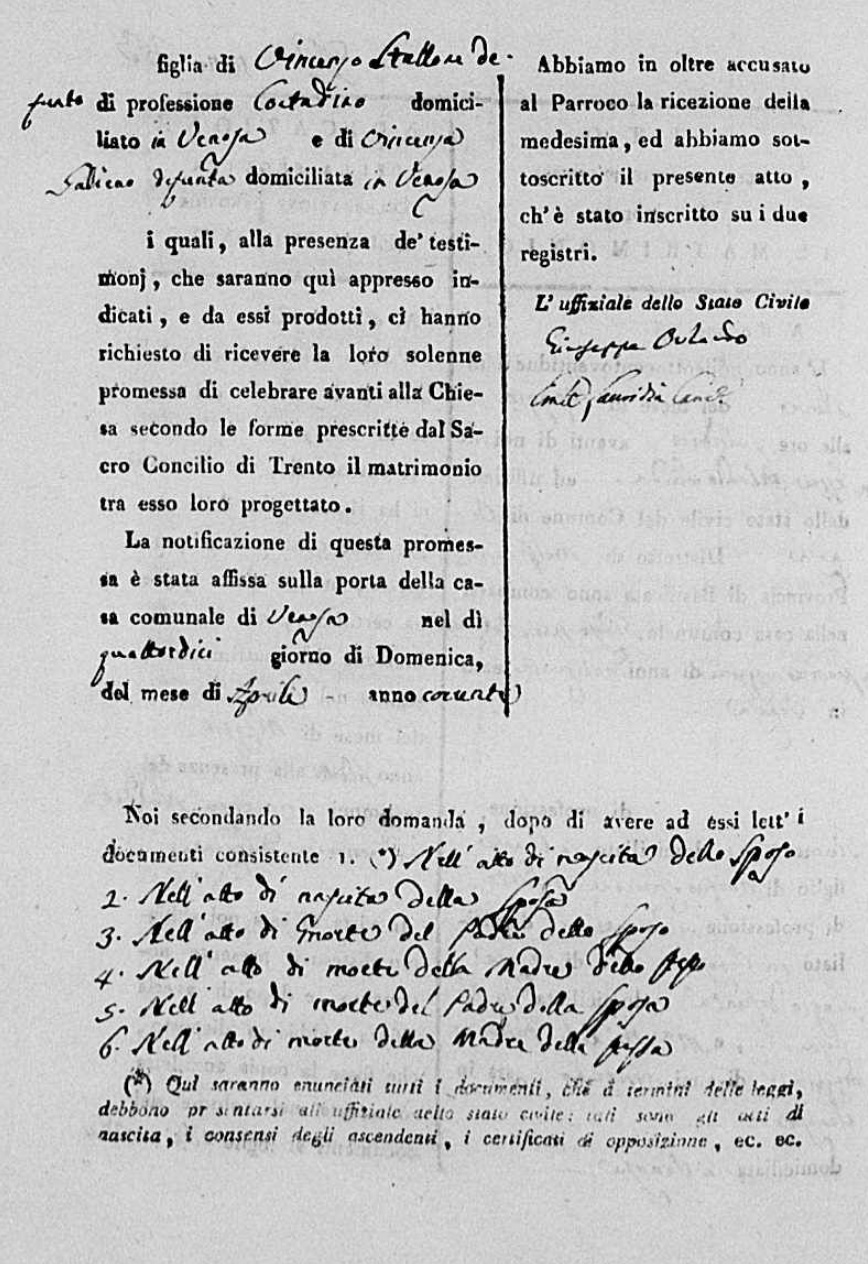 figlia di Vincenzo Stallone de-
funto di professione Contadino domici-
liato in Venosa e di Vincenza
defunta domiciliata in Venosa
i quali, alla presenza de' testi-
monj, che saranno quì appresso in-
dicati, e da essi prodotti, ci hanno
richiesto di ricevere la loro solenne
promessa di celebrare avanti alla Chie-
sa secondo le forme prescritte dal Sa-
cro Concilio di Trento il matrimonio
tra esso loro progettato.
La notificazione di questa promes-
sa è stata affissa sulla porta della ca-
sa comunale di Venosa nel dì
quattordici giorno di Domenica,
del mese di Aprile anno corrente
Abbiamo in oltre accusato
al Parroco la ricezione della
medesima, ed abbiamo sot-
toscritto il presente atto,
ch'è stato inscritto su i due
registri.
L'uffiziale dello Stato Civile
Giuseppe Orlando
Noi secondando la loro domanda, dopo di avere ad essi lett' i
documenti consistente 1. (*) Nell' atto di nascita dello Sposo
2. Nell' atto di nascita della Sposa
3. Nell' atto di morte del Padre dello Sposo
4. Nell' atto di morte della Madre dello stesso
5. Nell' atto di morte del Padre della Sposa
6. Nell' atto di morte della Madre della stessa
(*) Quì saranno enunciati tutti i documenti, che a termini delle leggi,
debbono pr sentarsi all'uffiziale dello stato civile: tali sono gli atti di
nascita, i consensi degli ascendenti, i certificati di opposizione, ec. ec.